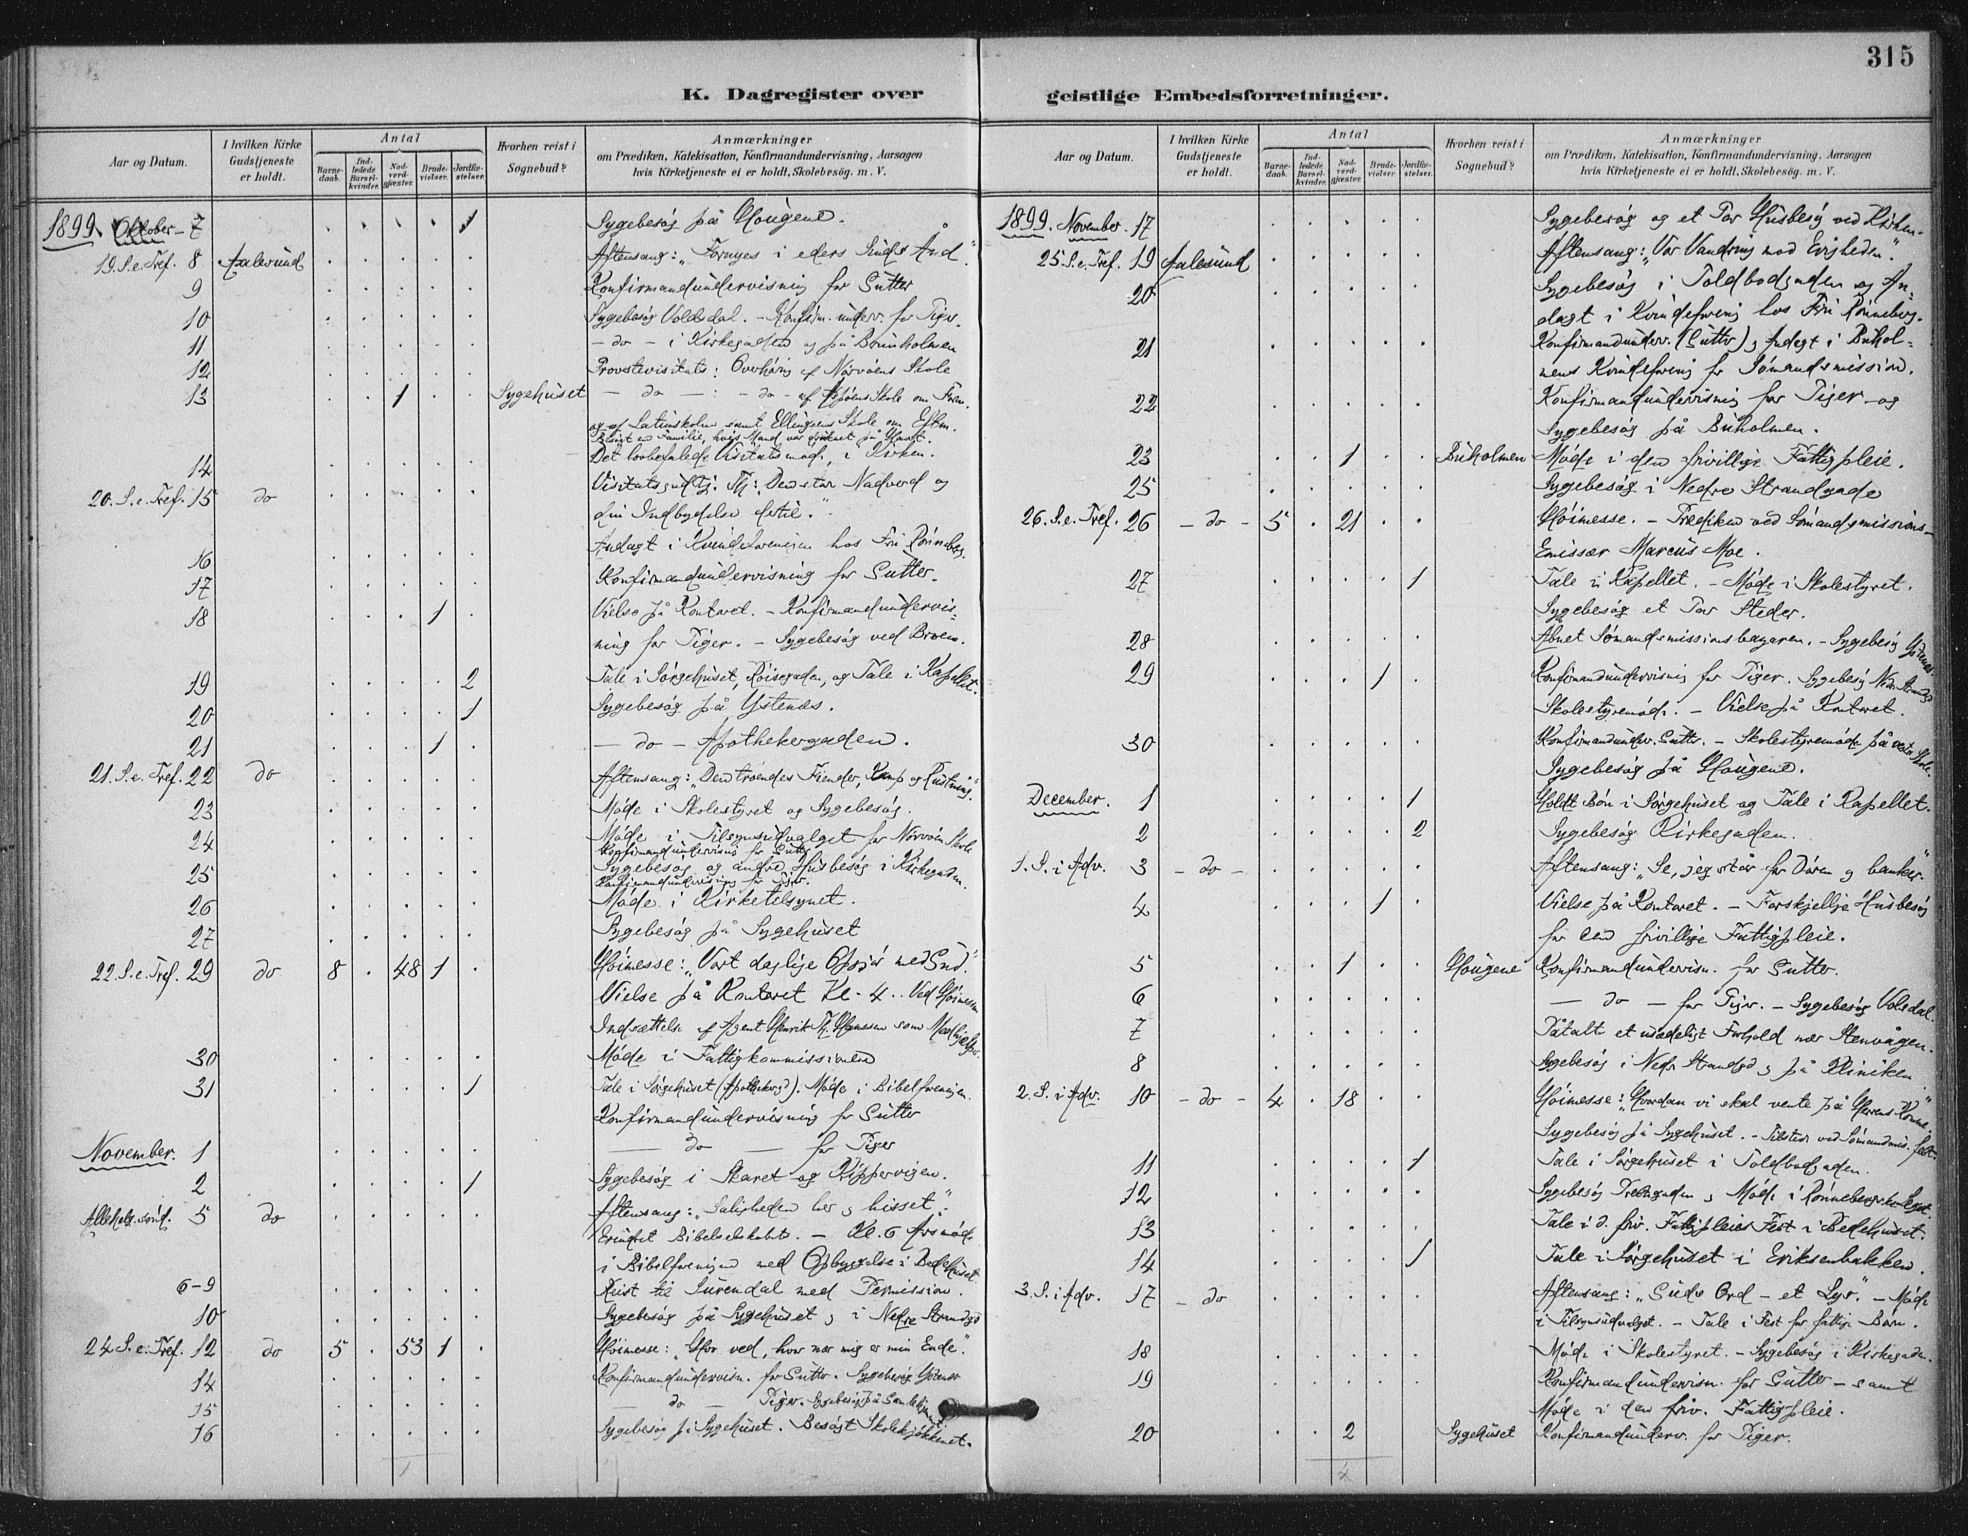 315
K. Dagregister over geistlige Embedsforretninger.
Aar og Datum.
I hvilken Kirke Gudstjeneste er holdt.
Antal
Barnedaab.
Indledede Barselkvinder.
Nadverdgjæster.
Brudevielser.
Jordfæstelser.
Hvorhen reist i Sognebud?
Anmærkninger
om Prædiken, Katekisation, Konfirmandundervisning, Aarsagen
hvis Kirketjeneste ei er holdt, Skolebesög. m. V.
1899. Oktober 7 1 Sygebesög på Hougene.
19. S. e. Tref. 8 Aalesund Aftensang: „Fornyes i eders Sinds Ånd.“
9 Konfirmandundervisning for Gutter
10 Sygebesög Voldsdal. – Konfirm. underv. for Piger.
11 – do – i Kirkegaden og på Brunholmen
12 Provstevisitats: Overhöring af Nörvöens Skole
13 1 Sygehuset – do – : – do – af Aspöens Skole om Form.
og af Latinskolen samt Ellingsens Skole om Eftm.
Besögt en Familie, hvis Mand var druknet på Havet.
14 Det lovbefalede Visitatsmöde i Kirken.
20. S. e. Tref. 15 do Visitatsgudtj. Tf: „Den store Nadverd og
din Indbydelse dertil.“
16 Andagt i Kvindeforeningen hos Fru Rönneberg.
17 Konfirmandundervisning for Gutter.
18 1 Vielse på Kontoret. – Konfirmandundervis-
ning for Piger. – Sygebesög ved Broen.
19 2 Tale i Sörgehuset, Röisegaden, og Tale i Kapellet.
20 1 Sygebesög på Ystenæs.
21 1 – do – Apothekergaden.
21. S. e. Tref. 22 do Aftensang: „Den troendes Fiender, Kamp og Rustning.“
23 Möde i Skolestyret og Sygebesög.
24 Möde i Tilsynsudvalget for Nörvöen Skole
Konfirmandundervisning for Gutter
25 Sygebesög og andre Husbesög i Kirkegaden.
Konfirmandundervisning for Piger.
26 Möde i Kirketilsynet.
27 Sygebesög på Sygehuset
22. S. e. Tref. 29 do 8 48 1 Höimesse: „Vort daglige Opgjör med Gud.“
Vielse på Kontoret Kl. 4. Ved Höimessen
Indsættelse af Agent Henrik Hanssen som Medhjælper.
30 Möde i Fattigkommissionen
31 1 Tale i Sörgehuset (Apothekergd). Möde i Bibelforeningen.
Konfirmandundervisning for Gutter
November. 1 – do – for Piger
2 1 Sygebesög i Skaret og Kippervigen.
Allehelg. sönd. 5 do Aftensang: „Saligheden her og hisset“.
Erindret Bibelselskabet. – Kl. 6 Årsmöde
i Bibelforeningen med Opbyggelse i Bedehuset
6–9 Reist til Surendal med Permission.
10 Sygebesög på Sygehuset og i Nedre Strandgd
24. S. e. Tref. 12 do 5 53 1 Höimesse: „Hvo ved, hvor nær mig er min Ende“.
14 Konfirmandundervisn. for Gutter. Sygebesög Ystenæs
15 – do – Piger. Sygebesög på
16 Sygebesög på Sygehuset. Besögt Skolekjökkenet.
1
Aar og Datum.
I hvilken Kirke Gudstjeneste er holdt.
Antal
Barnedaab.
Indledede Barselkvinder.
Nadverdgjæster.
Brudevielser.
Jordfæstelser.
Hvorhen reist i Sognebud?
Anmærkninger
om Prædiken, Katekisation, Konfirmandundervisning, Aarsagen
hvis Kirketjeneste ei er holdt, Skolebesög. m. V.
1899. November. 17 Sygebesög og et Par Husbesög ved Kirken.
25. S. e. Tref. 19 Aalesund Aftensang: „Vor Vandring mod Evigheden“.
20 Sygebesög i Toldbodgaden og An-
dagt i Kvindeforening hos Fru Rönneberg.
21 Konfirmandunderv. (Gutter) og Andagt i Buhol-
mens Kvindeforening for Sömandsmission.
22 Konfirmandundervisning for Piger og
Sygebesög på Buholmen.
23 1 Buholmen Möde i den frivillige Fattigpleie.
25 Sygebesög i Nedre Strandgade
26. S. e. Tref. 26 – do – 5 21 Höimesse. – Prædiken ved Sömandsmissions-
Emissær Marcus Moe.
27 1 Tale i Kapellet. – Möde i Skolestyret.
Sygebesög et Par Steder.
28 Åbnet Sömandsmissionsbazaren. – Sygebesög Ystenæs.
29 1 Konfirmandundervisning for Piger. Sygebesög Nedr. Strandgd
Skolestyremöde. – Vielse på Kontoret.
30 Konfirmandunderv. Gutter. – Skolestyremöde på Skole.
Sygebesög på Hougene.
December. 1 1 Holdt Bön i Sörgehuset og Tale i Kapellet.
2 2 Sygebesög Kirkegaden.
1. S. i Adv. 3 – do – Aftensang: „Se, jeg står for Dören og banker“
4 1 Vielse på Kontoret. – Forskjellige Husbesög
for den frivillige Fattigpleie.
5 1 Hougene Konfirmandundervisn. for Gutter.
6 – do – for Piger. – Sygebesög Volsdal.
7 Påtalt et usædeligt Forhold nær Stenvågen.
8 Sygebesög i Nedr. Strandgd og på Kliniken
2. S. i Adv. 10 – do – 4 18 Höimesse: „Hvordan vi skal vente på Herrens Komme“.
Sygebesög på Sygehuset. – Tilstede ved Sömandmis. fest.
11 1 Tale i Sörgehuset i Toldbodgaden.
12 Sygebesög og Möde i
13 Tale i d. friv. Fattigpleies Fest i Bedehuset.
14 1 Tale i Sörgehuset i Eriksenbakken.
3. S. i Adv. 17 – do Aftensang: „Guds Ord – et Lys“. – Möde
i Tilsynsudvalget. – Tale i Fest for fattige Barn.
18 Möde i Skolestyret. – Sygebesög i Kirkegaden.
19 Konfirmandundervisn. for Gutter – samt
Möde i den friv. Fattigpleie.
20 2 Sygehuset Konfirmandunderv. for Piger.
4